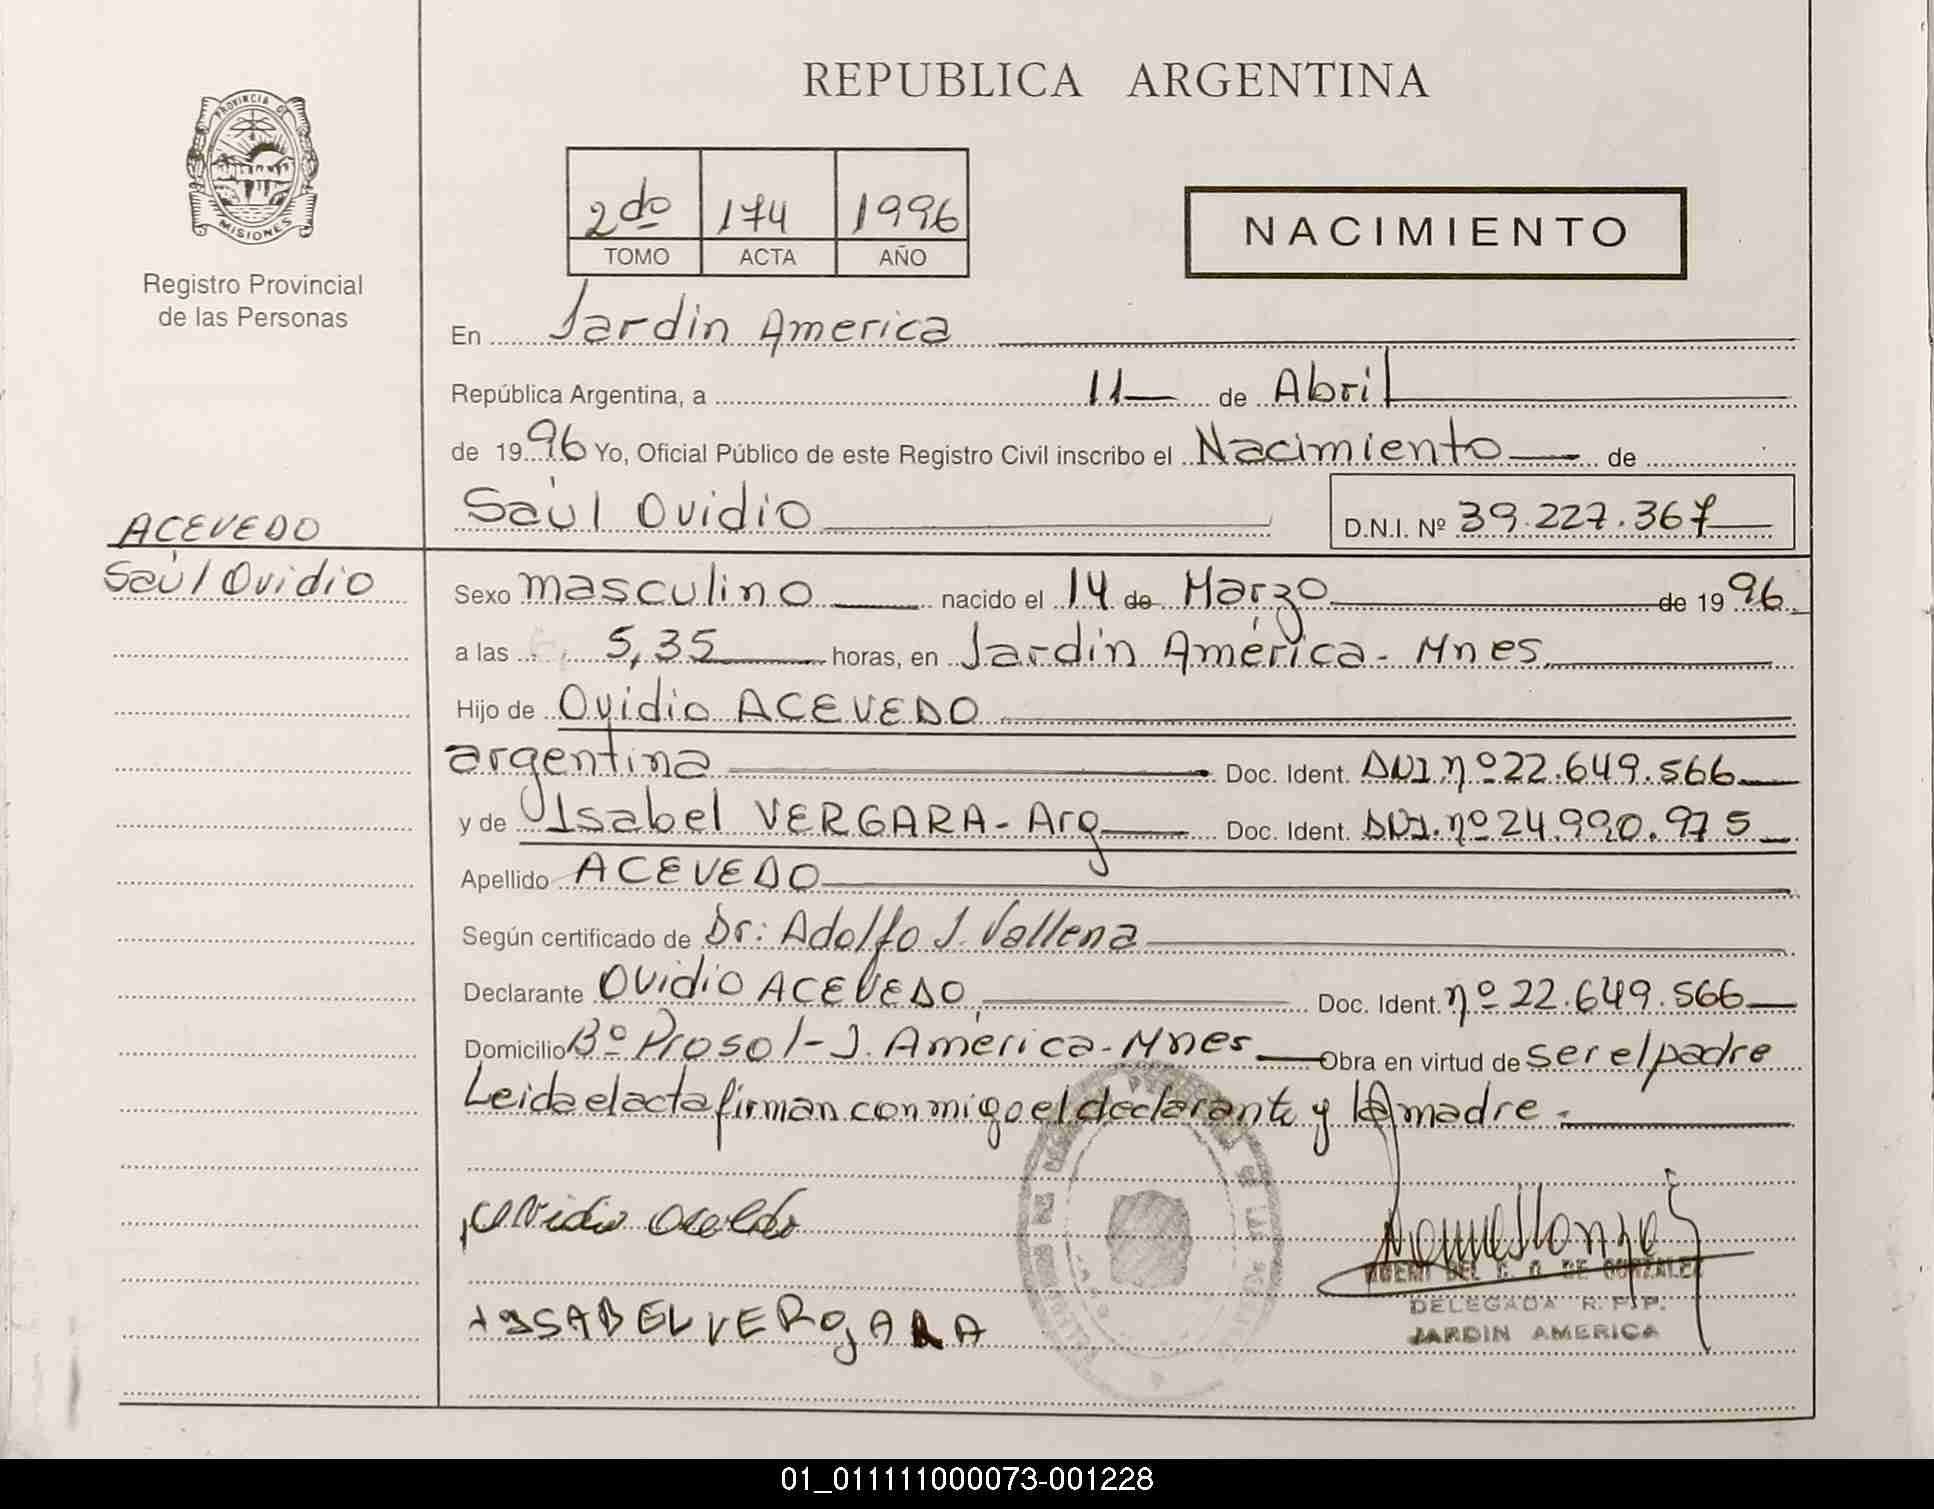 REPUBLICA ARGENTINA
PROVINCIA DE
MISIONES
Registro Provincial
de las Personas
2do 174 1996
TOMO ACTA AÑO
NACIMIENTO
En Jardin America
República Argentina, a 11 de Abril
de 1996 Yo, Oficial Público de este Registro Civil inscribo el Nacimiento de
Saúl Ovidio D.N.I. Nº 39.227.367
ACEVEDO
Saúl Ovidio
Sexo masculino nacido el 14 de Marzo de 1996
a las 5,35 horas, en Jardin América - Mnes
Hijo de Ovidio ACEVEDO
argentina Doc. Ident. DNI nº 22.649.566
y de Isabel VERGARA - Arg Doc. Ident. DNI. nº 24.990.975
Apellido ACEVEDO
Según certificado de Dr: Adolfo J. Vallena
Declarante Ovidio ACEVEDO Doc. Ident. nº 22.649.566
Domicilio Bº Prosol - J. América - Mnes Obra en virtud de ser el padre
Leida el acta firman conmigo el declarante y la madre.
ISABEL VERGARA
DEL C. O. DE GONZALEZ
DELEGADA R.P.P.
JARDIN AMERICA
01_011111000073-001228